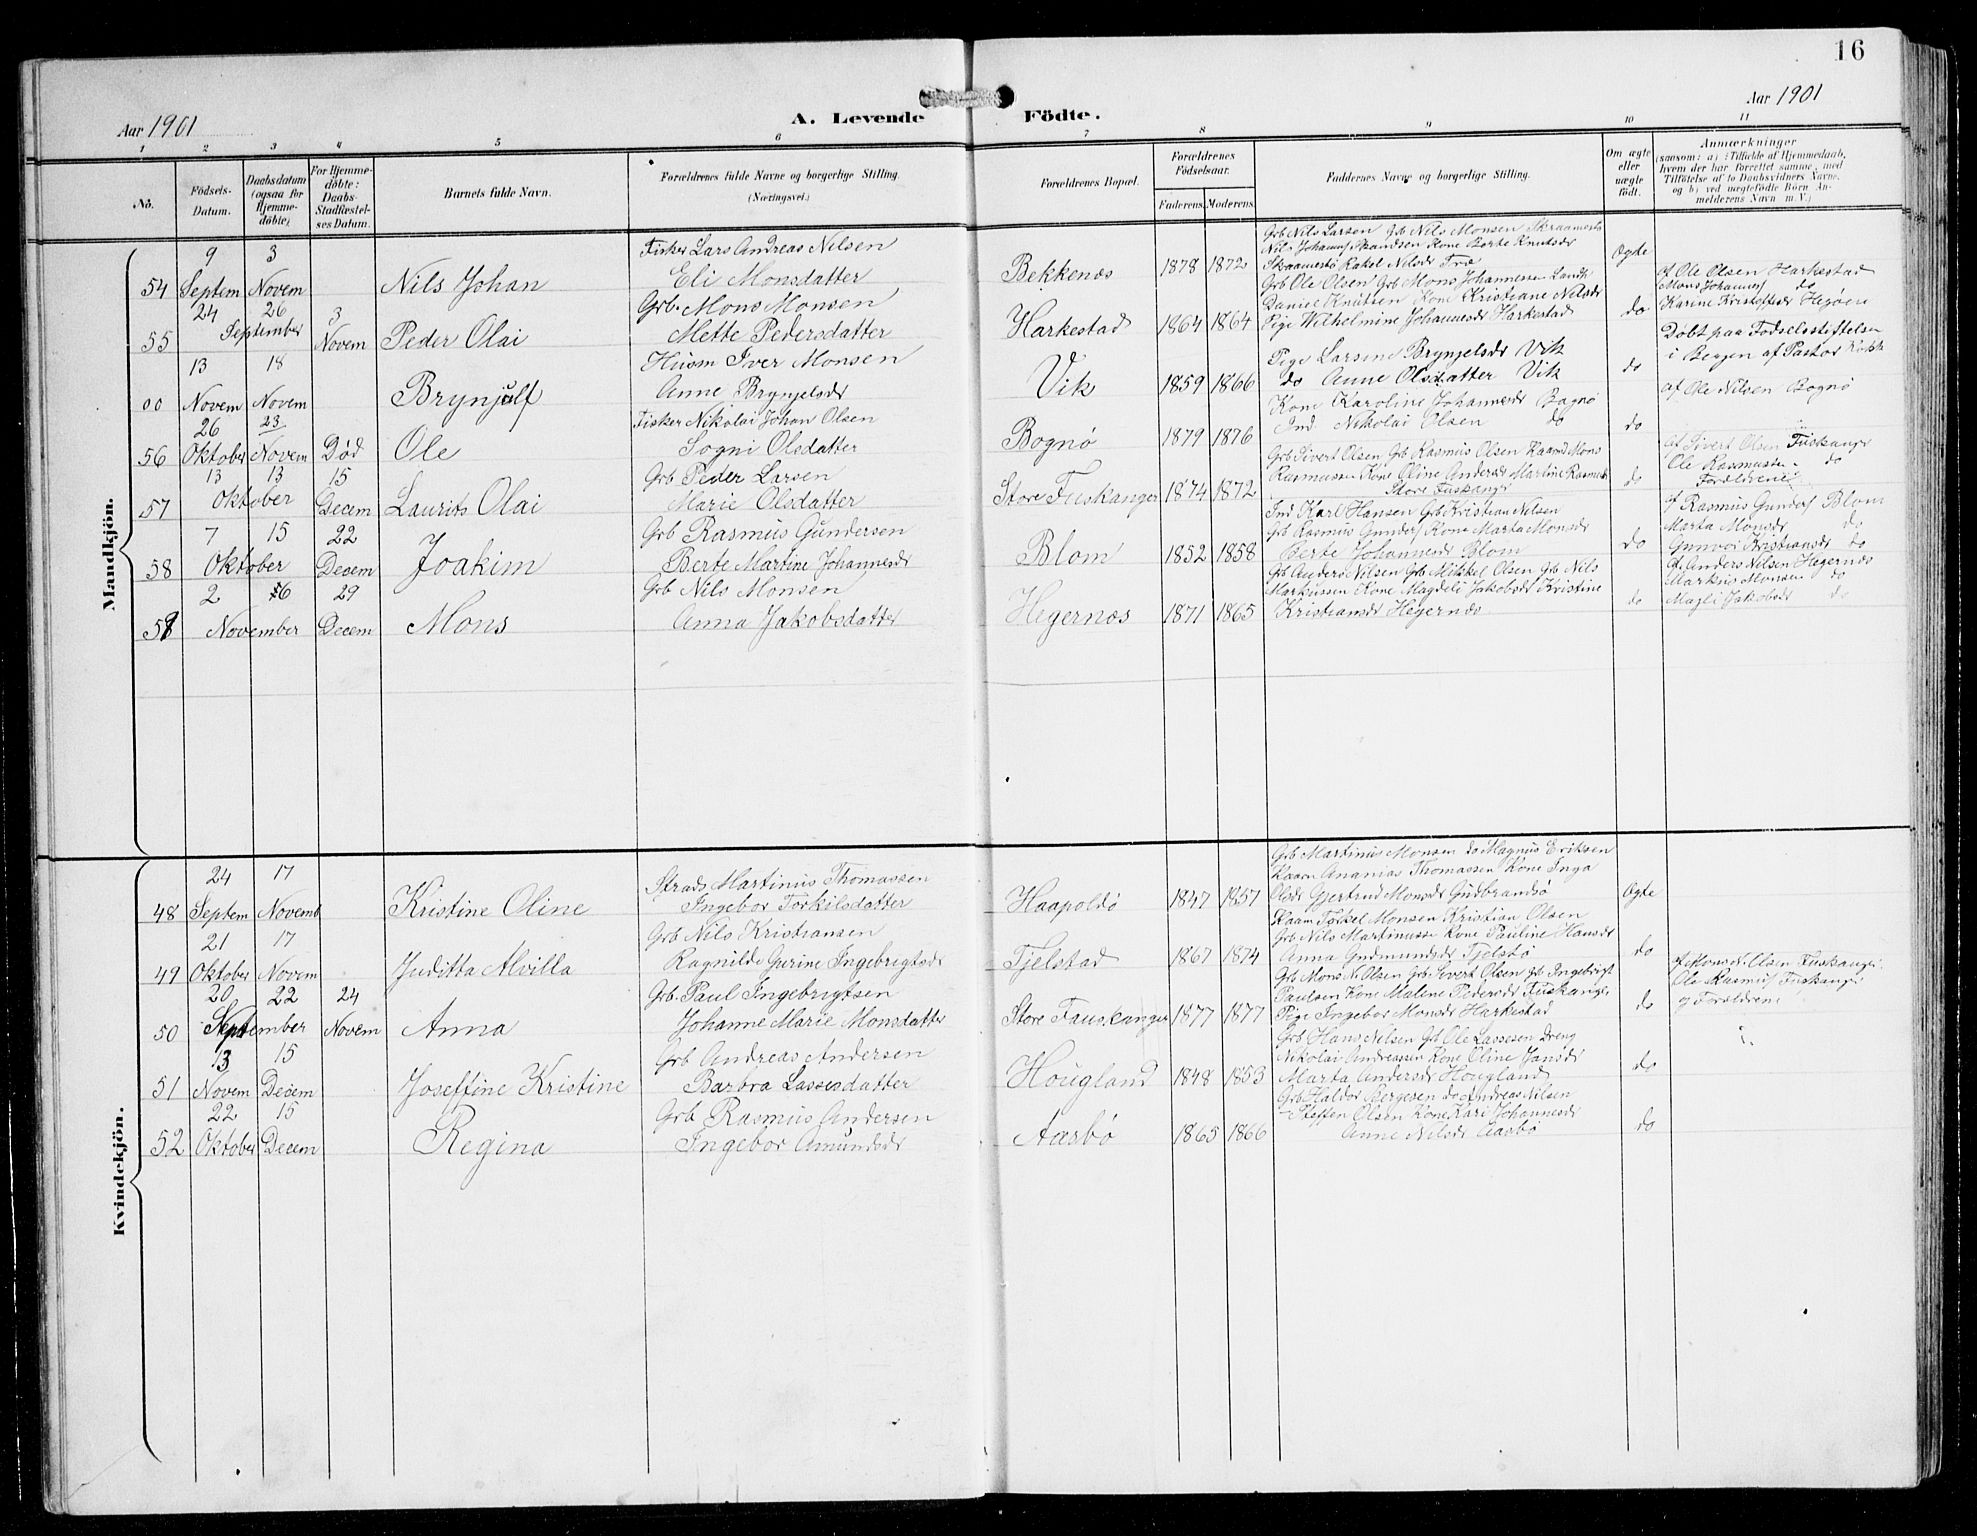 16
Aar 1901
A. Levende Födte.
Aar 1901
1 2 3 4 5 6 7 8 9 10 11
No.
Födsels-Datum.
Daabsdatum (ogsaa for Hjemme-döbte)
For Hjemme-döbte: Daabs-Stadfæstel-ses Datum.
Barnets fulde Navn.
Forældrenes fulde Navne og borgerlige Stilling. (Næringsvei.)
Forældrenes Bopæl.
Forældrenes Födselsaar.
Faderens. Moderens.
Faddernes Navne og borgerlige Stilling.
Om ægte eller uægte født.
Anmærkninger
(saasom: a) i Tilfælde af Hjemmedaab, hvem der har forrettet samme, med Tilföielse af to Daabsvidners Navne, og b) ved uægtefødte Börn An-melderens Navn m. V.)
Mandkjön.
54 9 Septem 3 Novem Nils Johan
Fisker Lars Andreas Nilsen
Eli Monsdatter
Bekkenes 1878 1872
Grb Nils Larsen Grb Nils Monsen Skraamestø
Nils Johannes Skandsen Kone Berte Knutsdr
Skraamestø Rakel Nilsdr Træ
Ægte
55 24 26 September 3 Novem Peder Olai
Grb. Mons Monsen
Mette Pedersdatter
Harkestad 1864 1864
Grb Ole Olsen Grb Mons Johannessen Landk
Daniel Knutsen Kone Kristiane Nilsdr
Pige Wilhelmine Johannesdr Harkestad
do
af Ole Olsen Harkestad
Mons Johannes do
Karine Kristoffersdr Hegøen
00 13 Novem 18 Novem Brynjulf
Husm Iver Monsen
Anne Brynjelsdr
Vik 1859 1866
Pige Larsine Brynjelsdr Vik
do Anne Olsdatter Vik
do
Døbt paa Fødselsstiftelsen
i Bergen af Pastor Kobbe
56 26 Oktober 23 Novem Død Ole
Fisker Nikolai Johan Olsen
Sogni Olsdatter
Bognø 1879 1876
Kone Karoline Johannesdr Bognø
Ind. Nikolai Olsen do
do
af Ole Nilsen Bognø
57 13 13 Oktober 15 Decem Laurits Olai
Grb Peder Larsen
Marie Olsdatter
Store Fuskanger 1874 1872
Grb Sivert Olsen Grb Rasmus Olsen Kaarm Mons
Rasmussen Kone Oline Andersdr Martine Rasmusdr
Store Fuskanger
do
af Sivert Olsen Fuskanger
Ole Rasmussen do
Forældrene
58 7 15 Oktober 22 Decem Joakim
Grb Rasmus Gundersen
Berte Martine Johannesdr
Blom 1852 1858
Ind Karl Hansen Grb Kristian Nilsen
Grb Rasmus Gunders Kone Marta Monsdr
Berte Johannesdr Blom
do
af Rasmus Gunders Blom
Marta Monsdr do
Gunvor Kristiansdr do
59 2 6 November 29 Decem Mons
Grb Nils Monsen
Anna Jakobsdatter
Hegernes 1871 1865
Grb Anders Nilsen Grb Mikkel Olsen Grb Nils
Markussen Kone Magdeli Jakobsdr Kristine
Kristiansdr Hegernes
do
af Anders Nilsen Hegernes
Markus Monsen do
Magli Jakobsdr do
Kvindekjön.
48 24 Septem 17 Novemb Kristine Oline
Strads Martinus Thomassen
Ingebor Torkilsdatter
Haapoldø 1847 1857
Grb Martinus Monsen do Magnus Eriksen
Kaarm Ananias Thomassen Kone Inga
Olsdr Gjertrud Monsdr Gudbrandsø
Ægte
49 21 Oktober 17 Novem Juditta Alvilla
Grb Nils Kristiansen
Ragnilde Gurine Ingebrigtsdr
Tjelstad 1867 1874
Kaarm Torkel Monsen Kristian Olsen
Grb Nils Martinusse Kone Pauline Hansdr
Anna Gudmundsdr Tjelstø
do
50 20 22 September 24 Novem Anna
Grb. Paul Ingebrigtsen
Johanne Marie Monsdatter
Store Fauskanger 1877 1877
Grb Mons N. Olsen Grb Sivert Olsen Grb Ingebrigt
Paulsen Kone Malene Pedersdr Fuskanger
Pige Ingebor Monsdr Harkestad
do
af Mons N. Olsen Fuskanger
Ole Rasmus Fuskanger
og Forældrene
51 13 Novem 15 Decem Joseffine Kristine
Grb Andreas Andersen
Barbra Lassesdatter
Hougland 1848 1853
Grb Hans Nilsen Grb Ole Lassesen Dreng
Nikolai Andreassen Kone Oline Jansdr
Marta Andersdr Hougland
do
52 22 Oktober 15 Decem Regina
Grb Rasmus Andersen
Ingebor Amundsdr
Aasbø 1865 1866
Grb Haldor Bergesen do Andreas Nilsen
Steffen Olsen Kone Kari Johannesdr
Anne Nilsdr Aasbø
do